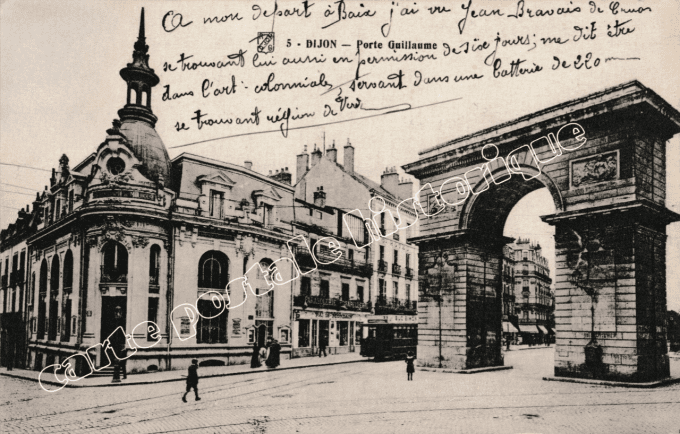 A mon départ à Baix j'ai vu Jean Bravais de Cruas
5 - DIJON — Porte Guillaume
se trouvant lui aussi en permission de six jours; me dit être
dans l'art. colonniale, servant dans une batterie de 220
se trouvant région de Verd
carte postale historique